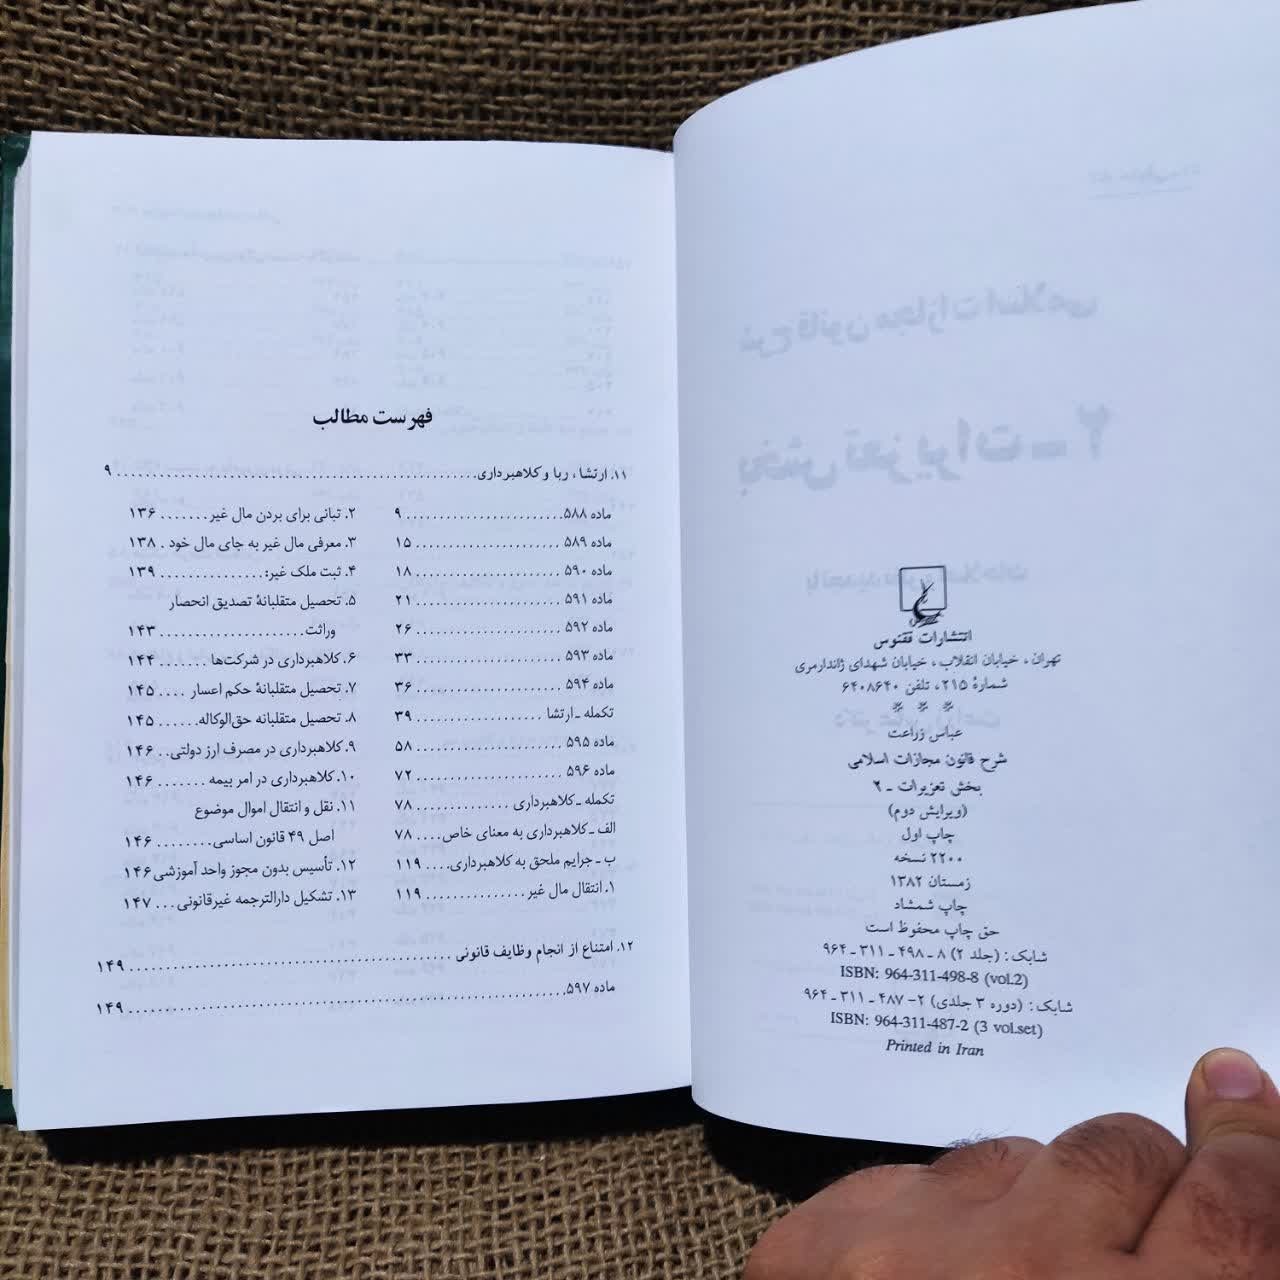 انتشارات ققنوس
تهران، خیابان انقلاب، خیابان شهدای ژاندارمری
شمارهٔ ۲۱۵، تلفن ۶۴۰۸۶۴۰
* * *
عباس زراعت
شرح قانون مجازات اسلامی
بخش تعزیرات ـ ۲
(ویرایش دوم)
چاپ اول
۲۲۰۰ نسخه
زمستان ۱۳۸۲
چاپ شمشاد
حق چاپ محفوظ است
شابک: (جلد ۲) ۸ ـ ۴۹۸ ـ ۳۱۱ ـ ۹۶۴
ISBN: 964-311-498-8 (vol.2)
شابک: (دوره ۳ جلدی) ۲- ۴۸۷ ـ ۳۱۱ ـ ۹۶۴
ISBN: 964-311-487-2 (3 vol.set)
Printed in Iran
فهرست مطالب
۱۱. ارتشا، ربا و کلاهبرداری ........ ۹
ماده ۵۸۸ ........ ۹
ماده ۵۸۹ ........ ۱۵
ماده ۵۹۰ ........ ۱۸
ماده ۵۹۱ ........ ۲۱
ماده ۵۹۲ ........ ۲۶
ماده ۵۹۳ ........ ۳۳
ماده ۵۹۴ ........ ۳۶
تکمله ـ ارتشا ........ ۳۹
ماده ۵۹۵ ........ ۵۸
ماده ۵۹۶ ........ ۷۲
تکمله ـ کلاهبرداری ........ ۷۸
الف ـ کلاهبرداری به معنای خاص .... ۷۸
ب ـ جرایم ملحق به کلاهبرداری .... ۱۱۹
۱. انتقال مال غیر ........ ۱۱۹
۲. تبانی برای بردن مال غیر ....... ۱۳۶
۳. معرفی مال غیر به جای مال خود . ۱۳۸
۴. ثبت ملک غیر: ........ ۱۳۹
۵. تحصیل متقلبانهٔ تصدیق انحصار
وراثت ........ ۱۴۳
۶. کلاهبرداری در شرکت‌ها ....... ۱۴۴
۷. تحصیل متقلبانهٔ حکم اعسار .... ۱۴۵
۸. تحصیل متقلبانه حق‌الوکاله ...... ۱۴۵
۹. کلاهبرداری در مصرف ارز دولتی .. ۱۴۶
۱۰. کلاهبرداری در امر بیمه ....... ۱۴۶
۱۱. نقل و انتقال اموال موضوع
اصل ۴۹ قانون اساسی ........ ۱۴۶
۱۲. تأسیس بدون مجوز واحد آموزشی ۱۴۶
۱۳. تشکیل دارالترجمه غیرقانونی ... ۱۴۷
۱۲. امتناع از انجام وظایف قانونی ........ ۱۴۹
ماده ۵۹۷ ........ ۱۴۹